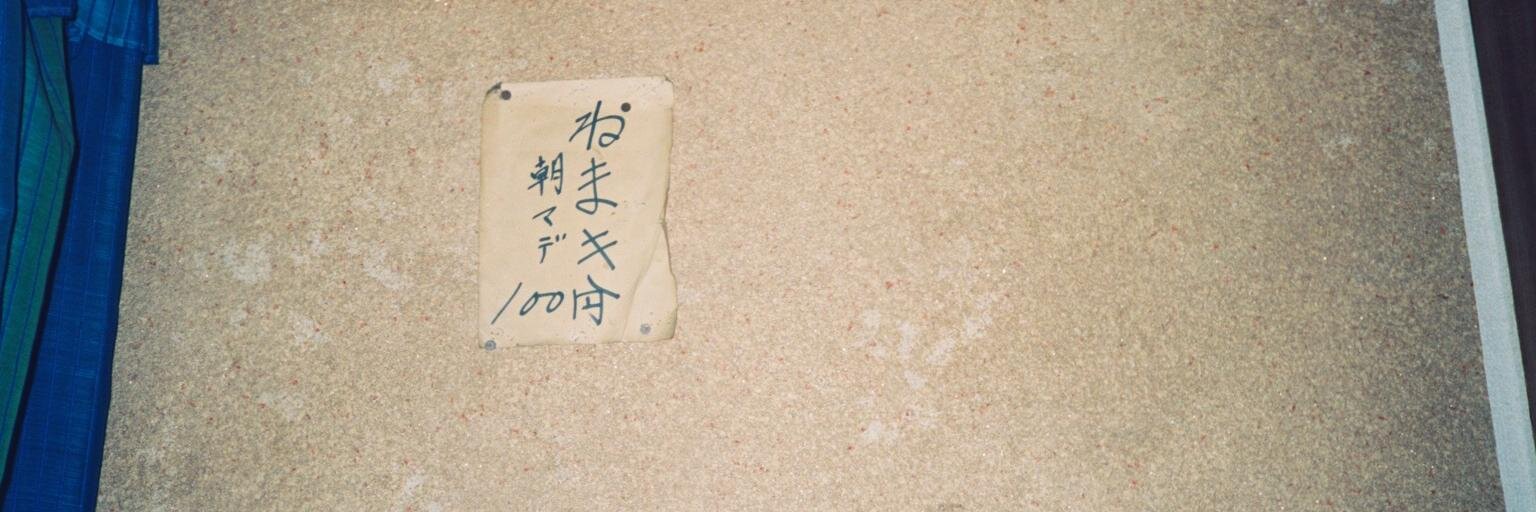 ねまキ
朝マデ
100円